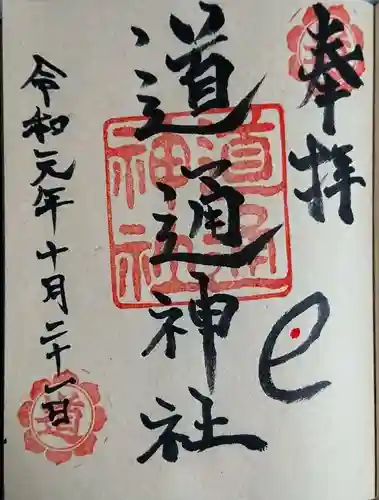 奉拝
道通神社
道通神社
令和元年十月二十一日
道